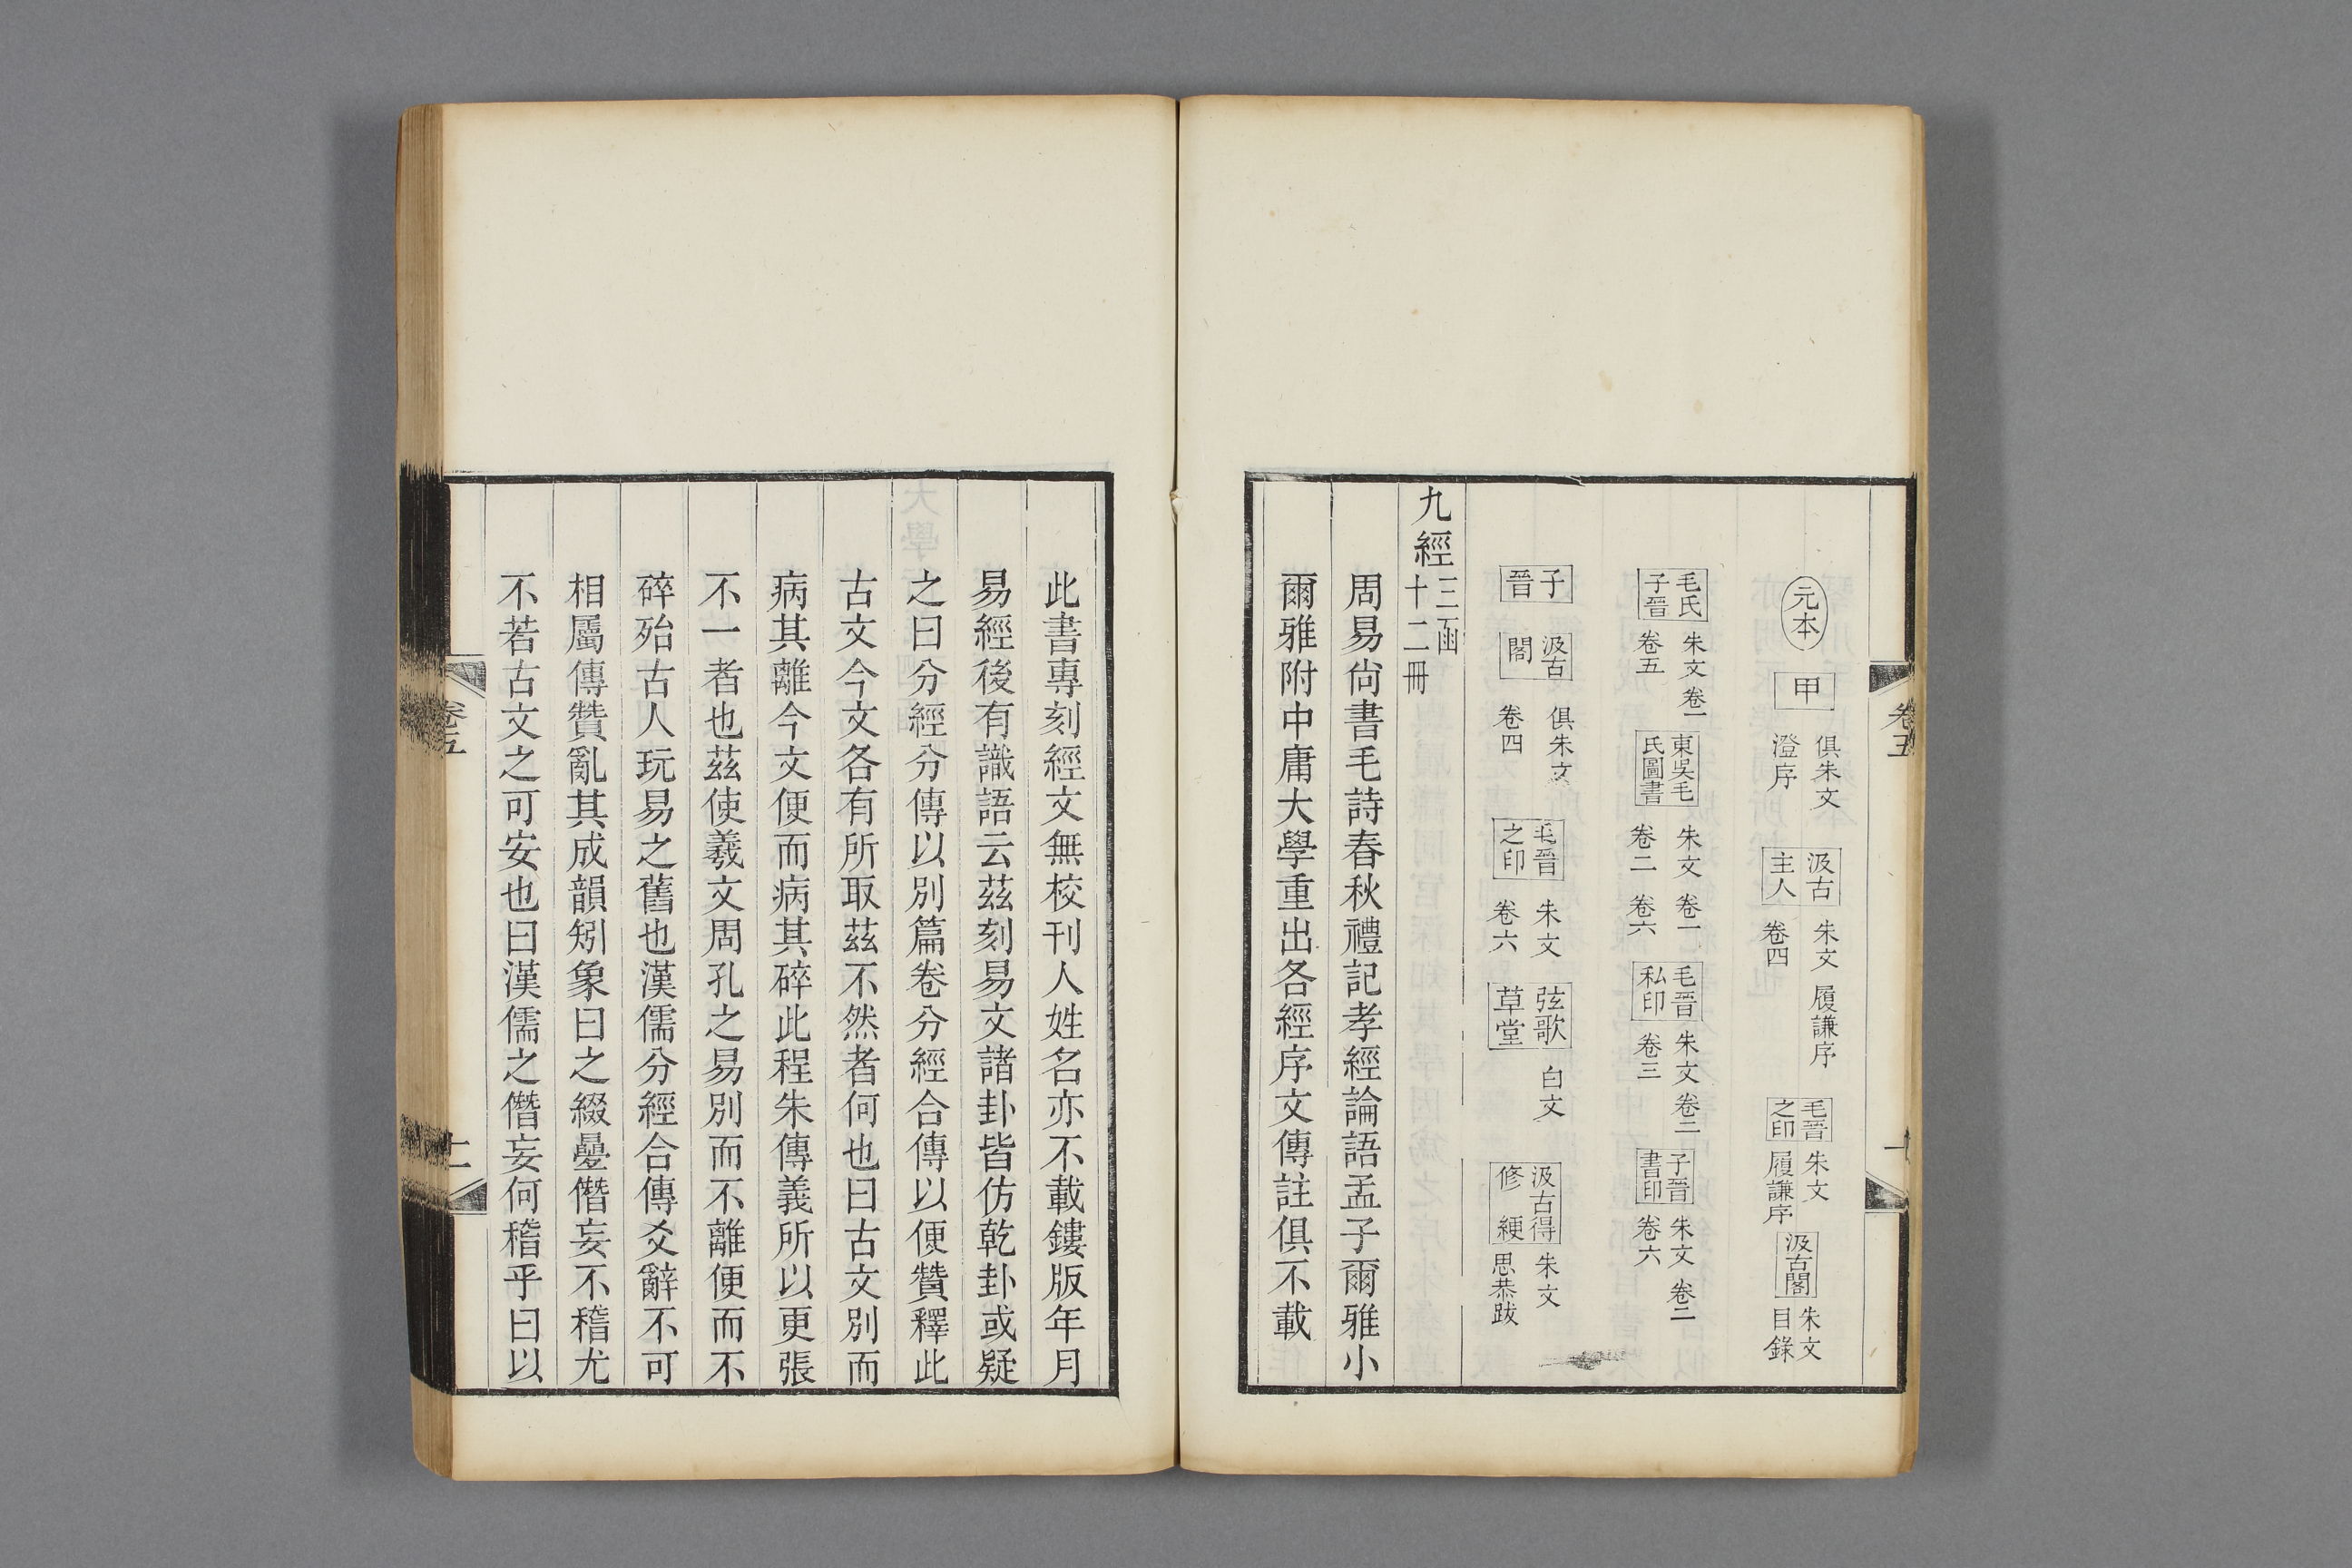 卷五
元本
甲
俱朱文
澄序
汲古
主人
朱文
卷四
履謙序
毛晉
之印
朱文
履謙序
汲古閣
朱文
目錄
毛氏
子晉
朱文 卷一
卷五
東吳毛
氏圖書
朱文 卷一
卷二 卷六
毛晉
私印
朱文 卷二
卷三
子晉
書印
朱文 卷二
卷六
子
晉
汲古
閣
俱朱文
卷四
毛晉
之印
朱文
卷六
弦歌
草堂
白文
汲古得
修綆
朱文
思恭跋
九經
三函
十二冊
周易尙書毛詩春秋禮記孝經論語孟子爾雅小
爾雅附中庸大學重出各經序文傳註俱不載
此書專刻經文無校刊人姓名亦不載鏤版年月
易經後有識語云茲刻易文諸卦皆仿乾卦或疑
之曰分經分傳以別篇卷分經合傳以便贊釋此
古文今文各有所取茲不然者何也曰古文別而
病其離今文便而病其碎此程朱傳義所以更張
不一者也茲使羲文周孔之易別而不離便而不
碎殆古人玩易之舊也漢儒分經合傳爻辭不可
相屬傳贊亂其成韻矧象曰之綴曡僭妄不稽尤
不若古文之可安也曰漢儒之僭妄何稽乎曰以
卷五
十一